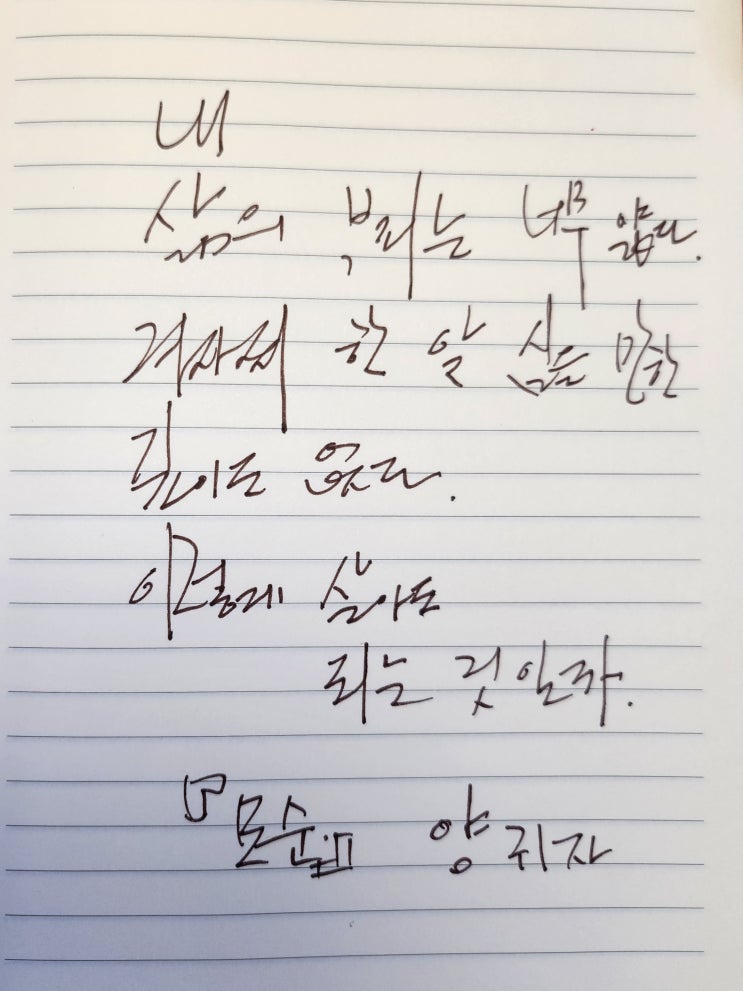 내
삶의 부피는 너무 얇다.
겨자씨 한 알 심을 만한
깊이도 없다.
이렇게 살아도
되는 것일까.
『모순』 양귀자